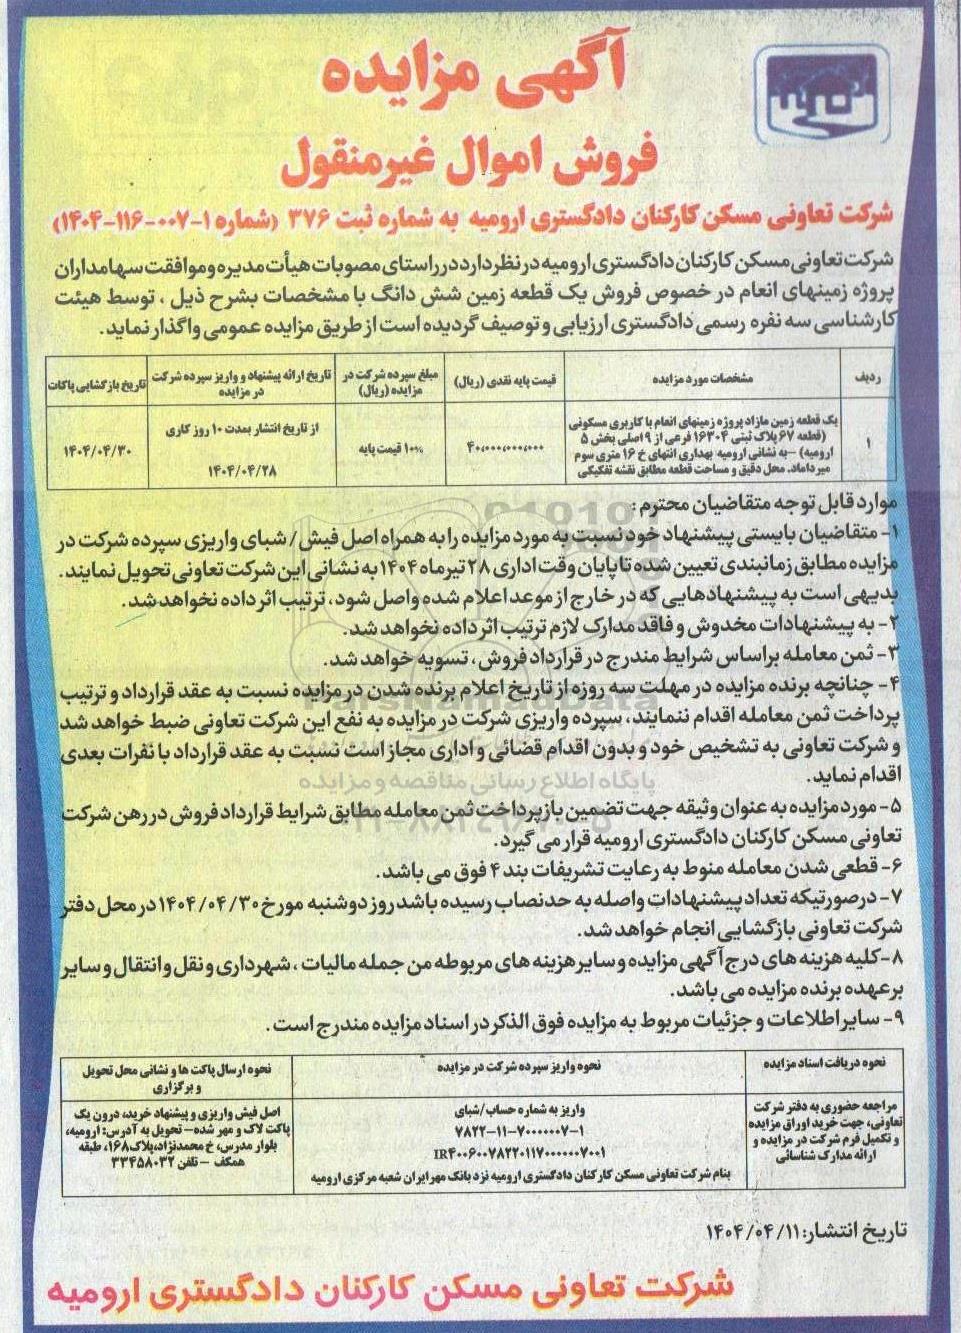 آگهی مزایده
فروش اموال غیرمنقول
شرکت تعاونی مسکن کارکنان دادگستری ارومیه به شماره ثبت ۳۷۶ (شماره ۱-۰۰۷-۱۱۶-۱۴۰۴)
شرکت تعاونی مسکن کارکنان دادگستری ارومیه در نظر دارد در راستای مصوبات هیأت مدیره و موافقت سهامداران
پروژه زمینهای انعام در خصوص فروش یک قطعه زمین شش دانگ با مشخصات بشرح ذیل ، توسط هیئت
کارشناسی سه نفره رسمی دادگستری ارزیابی و توصیف گردیده است از طریق مزایده عمومی واگذار نماید.
ردیف
مشخصات مورد مزایده
قیمت پایه نقدی (ریال)
مبلغ سپرده شرکت در
مزایده (ریال)
تاریخ ارائه پیشنهاد و واریز سپرده شرکت
در مزایده
تاریخ بازگشایی پاکات
۱
یک قطعه زمین مازاد پروژه زمینهای انعام با کاربری مسکونی
(قطعه ۶۷ پلاک ثبتی ۱۶۳۰۴ فرعی از ۹ اصلی بخش ۵
ارومیه) –به نشانی ارومیه بهداری انتهای خ ۱۶ متری سوم
میرداماد. محل دقیق و مساحت قطعه مطابق نقشه تفکیکی
۴۰،۰۰۰،۰۰۰،۰۰۰
۱۰% قیمت پایه
از تاریخ انتشار بمدت ۱۰ روز کاری
۱۴۰۴/۰۴/۲۸
۱۴۰۴/۰۴/۳۰
موارد قابل توجه متقاضیان محترم :
۱- متقاضیان بایستی پیشنهاد خود نسبت به مورد مزایده را به همراه اصل فیش/ شبای واریزی سپرده شرکت در
مزایده مطابق زمانبندی تعیین شده تا پایان وقت اداری ۲۸ تیرماه ۱۴۰۴ به نشانی این شرکت تعاونی تحویل نمایند.
بدیهی است به پیشنهادهایی که در خارج از موعد اعلام شده واصل شود، ترتیب اثر داده نخواهد شد.
۲- به پیشنهادات مخدوش و فاقد مدارک لازم ترتیب اثر داده نخواهد شد.
۳- ثمن معامله براساس شرایط مندرج در قرارداد فروش ، تسویه خواهد شد.
۴- چنانچه برنده مزایده در مهلت سه روزه از تاریخ اعلام برنده شدن در مزایده نسبت به عقد قرارداد و ترتیب
پرداخت ثمن معامله اقدام ننمایند، سپرده واریزی شرکت در مزایده به نفع این شرکت تعاونی ضبط خواهد شد
و شرکت تعاونی به تشخیص خود و بدون اقدام قضائی و اداری مجاز است نسبت به عقد قرارداد با نفرات بعدی
اقدام نماید.
ParsNamadData
پایگاه اطلاع رسانی مناقصه و مزایده
۵- مورد مزایده به عنوان وثیقه جهت تضمین بازپرداخت ثمن معامله مطابق شرایط قرارداد فروش در رهن شرکت
تعاونی مسکن کارکنان دادگستری ارومیه قرار می گیرد.
۶- قطعی شدن معامله منوط به رعایت تشریفات بند ۴ فوق می باشد.
۷- در صورتیکه تعداد پیشنهادات واصله به حدنصاب رسیده باشد روز دوشنبه مورخ ۱۴۰۴/۰۴/۳۰ در محل دفتر
شرکت تعاونی بازگشایی انجام خواهد شد.
۸-کلیه هزینه های درج آگهی مزایده و سایر هزینه های مربوطه من جمله مالیات ، شهرداری و نقل و انتقال و سایر
برعهده برنده مزایده می باشد.
۹- سایر اطلاعات و جزئیات مربوط به مزایده فوق الذکر در اسناد مزایده مندرج است .
نحوه دریافت اسناد مزایده
نحوه واریز سپرده شرکت در مزایده
نحوه ارسال پاکت ها و نشانی محل تحویل
و برگزاری
مراجعه حضوری به دفتر شرکت
تعاونی، جهت خرید اوراق مزایده
و تکمیل فرم شرکت در مزایده و
ارائه مدارک شناسائی
واریز به شماره حساب/شبای
۷۸۲۲-۱۱-۷۰۰۰۰۰۰۷-۱
IR۴۰۰۶۰۰۷۸۲۲۰۱۱۷۰۰۰۰۰۰۷۰۰۱
بنام شرکت تعاونی مسکن کارکنان دادگستری ارومیه نزد بانک مهر ایران شعبه مرکزی ارومیه
اصل فیش واریزی و پیشنهاد خرید، درون یک
پاکت لاک و مهر شده– تحویل به آدرس: ارومیه،
بلوار مدرس، خ محمدنژاد،پلاک۱۶۸، طبقه
همکف – تلفن ۳۳۴۵۸۰۳۲
تاریخ انتشار: ۱۴۰۴/۰۴/۱۱
شرکت تعاونی مسکن کارکنان دادگستری ارومیه